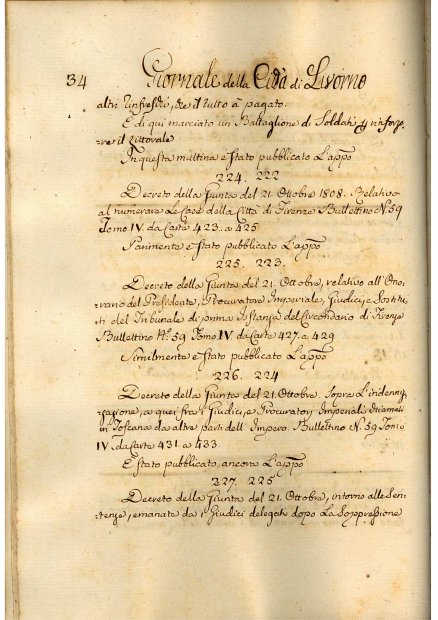 34 Giornale della Città di Livorno
altri Rinfreschi, che il tutto à pagato.
È di qui marciato un Battaglione di Soldati p rinforza-
re il littorale
In questa mattina è stato pubblicato L'appo
224. 222
Decreto della Giunta del 21. Ottobre 1808. Relativo
al numerare Le Case della Città di Firenze Bullettino N. 59
Tomo IV. da Carte 423. a 425
Parimente è stato pubblicato L'appo
225. 223.
Decreto della Giunta del 21. Ottobre, relativo all'Ono-
rario del Presidente, Procuratore Imperiale, Giudici, e Sostitu
ti del Tribunale di prima Istanza del Circondario di Firenze
Bullettino N.o 59 Tomo IV da Carte 427. a 429
Similmente è stato pubblicato L'appo
226. 224
Decreto della Giunta del 21. Ottobre. Sopra L'indenniz-
zazione, a quei fra i Giudici, e Procuratori Imperiali chiamati
in Toscana da altre parti dell'Impero. Bullettino N. 59 Tomo
IV. da Carte 431. a 433.
È stato pubblicato ancora L'appo
227. 225
Decreto della Giunta del 21. Ottobre, intorno alle Sen-
tenze, emanate da i Giudici delegati dopo La Soppressione